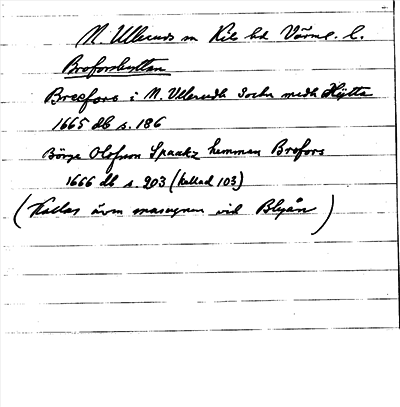 N. Ullerud sn Kils hd Värml. l.
Broforshyttan
Breefors i N. Ullerudh Sochn medh Hÿtta
1665 db s. 186
Börge Olofson Spaakz hemman Brofors
1666 db s. 203 (kallad 103)
(Kallas även masugnen vid Blyån)